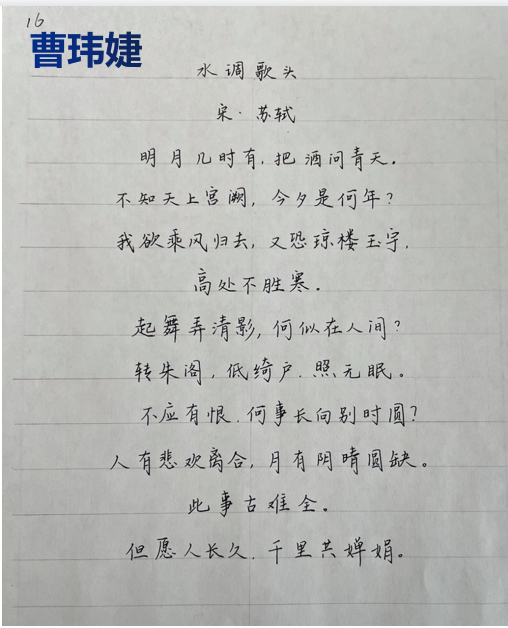 16
曹玮婕
水调歌头
宋·苏轼
明月几时有,把酒问青天.
不知天上宫阙,今夕是何年?
我欲乘风归去,又恐琼楼玉宇,
高处不胜寒.
起舞弄清影,何似在人间?
转朱阁,低绮户.照无眠。
不应有恨.何事长向别时圆?
人有悲欢离合,月有阴晴圆缺。
此事古难全。
但愿人长久.千里共婵娟。